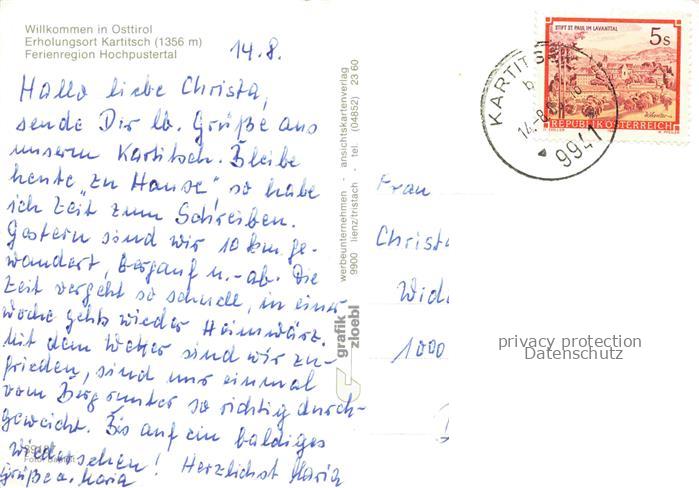 Willkommen in Osttirol
Erholungsort Kartitsch (1356 m)
Ferienregion Hochpustertal
14.8.
Hallo liebe Christa,
sende Dir lb. Grüße aus
unserem Kartitsch. Bleibe
heute „zu Hause", so habe
ich Zeit zum Schreiben.
Gestern sind wir 10 km ge-
wandert, bergauf u.-ab. Die
Zeit vergeht so schnell, in einer
Woche gehts wieder Heimwärz.
Mit dem Wetter sind wir zu-
frieden, sind nur einmal
vom Berg runter so richtig durch-
geweicht. Bis auf ein baldiges
wiedersehen! Herzlichst Maria
Grüße a. Maria
werbeunternehmen - ansichtskartenverlag
9900 lienz/tristach - tel. (04852) 23 60
grafik
zloebl
STIFT ST. PAUL IM LAVANTTAL
5s
REPUBLIK ÖSTERREICH
KARTITS
14.-8.
9941
Frau
Christa
Wid
1000
privacy protection
Datenschutz